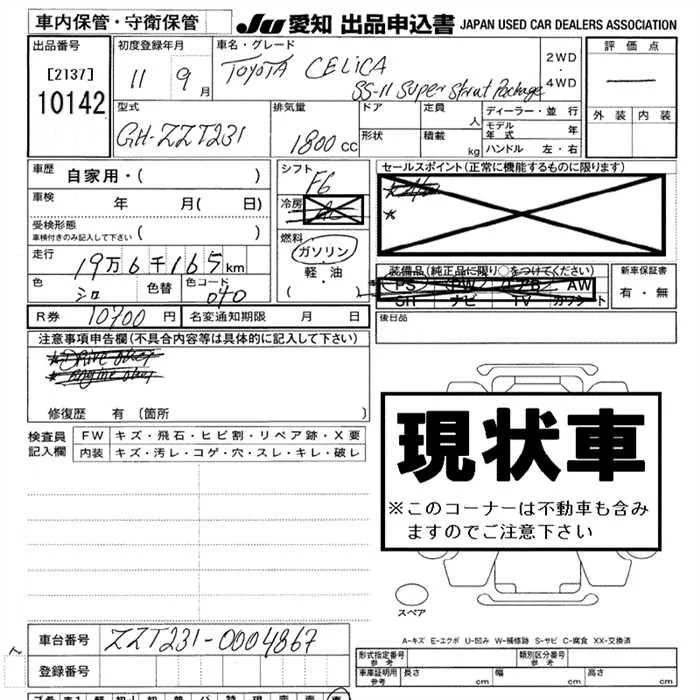 車内保管・守衛保管
JU 愛知 出品申込書 JAPAN USED CAR DEALERS ASSOCIATION
出品番号
[2137]
10142
初度登録年月
11 9月
車名・グレード
TOYOTA CELICA
SS-II Super Strut Package
2WD
・
4WD
評価点
外装 内装
型式
GH-ZZT231
排気量
1800cc
ドア
形状
定員 人
積載 kg
ディーラー・並行
モデル年式 年
ハンドル 左・右
車歴 自家用・( )
車検 年 月( 日)
受検形態
車検付きのみ記入して下さい ( )
走行 19万6千165km
色 シロ 色替 色コード 040
シフト F6
冷房 AC
燃料
ガソリン
・
軽・油
( )
セールスポイント(正常に機能するものに限ります)
装備品(純正品に限り○をつけてください)
PS PW エアB AW
ナビ TV
新車保証書
有・無
R券 10700 円 名変通知期限 月 日
後日品
注意事項申告欄(不具合内容等は具体的に記入して下さい)
修復歴 有 〔箇所 〕
検査員記入欄
FW キズ・飛石・ヒビ割・リペア跡・X要
内装 キズ・汚レ・コゲ・穴・スレ・キレ・破レ
現状車
※このコーナーは不動車も含み
ますのでご注意下さい
スペア
A-キズ E-エクボ U-凹み W-補修跡 S-サビ C-腐食 XX-交換済
車台番号 ZZT231-0004867
登録番号
形式指定番号 参考
類別区分番号 参考
車庫証明用 参考 長さ cm 幅 cm 高さ cm